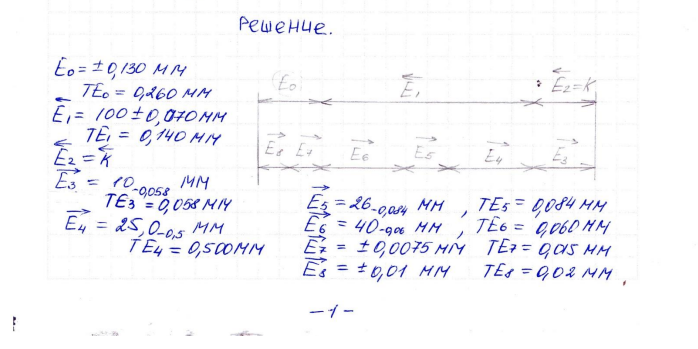 Решение.
E₀ = ±0,130 мм
TE₀ = 0,260 мм
E₁ = 100 ± 0,070 мм
TE₁ = 0,140 мм
E₂ = K
E₃ = 10₋₀,₀₅₈ мм
TE₃ = 0,058 мм
E₄ = 25,0₋₀,₅ мм
TE₄ = 0,500 мм
E₀ E₁ E₂=K
E₈ E₇ E₆ E₅ E₄ E₃
E₅ = 26₋₀,₀₈₄ мм , TE₅ = 0,084 мм
E₆ = 40₋₀,₀₆ мм , TE₆ = 0,060 мм
E₇ = ±0,0075 мм TE₇ = 0,015 мм
E₈ = ±0,01 мм TE₈ = 0,02 мм
-1-